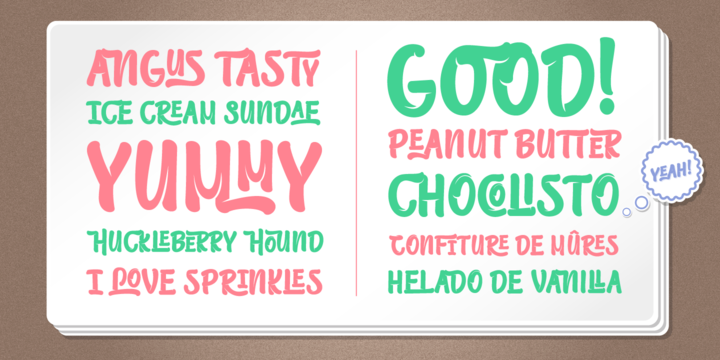 ANGUS TASTY
ICE CREAM SUNDAE
YUMMY
HUCKLEBERRY HOUND
I LOVE SPRINKLES
GOOD!
PEANUT BUTTER
CHOCOLISTO
CONFITURE DE MÛRES
HELADO DE VANILLA
YEAH!